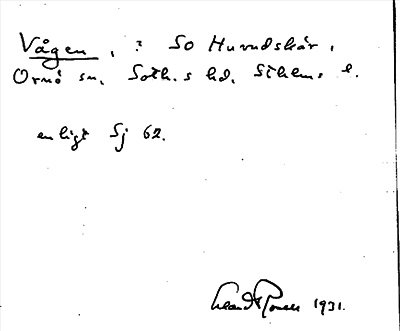 Vågen, : SO Huvudskär,
Ornö sn, Soth.s hd, Sthlms l.
enligt Sj 62.
1931.